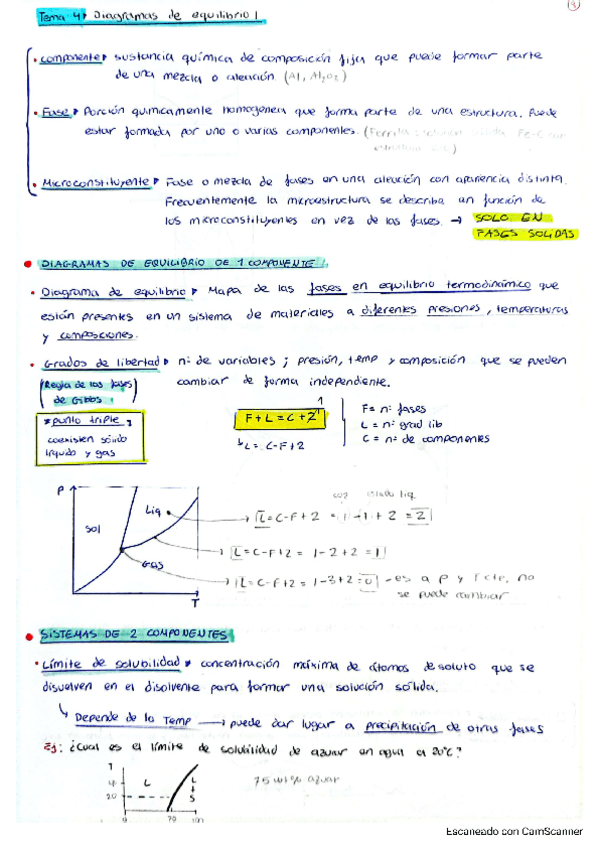 Tema 4: Diagramas de equilibrio
Componente: sustancia química de composición fija que puede formar parte
de una mezcla o aleación (Al, Al2O3)
Fase: Porción químicamente homogénea que forma parte de una estructura. Puede
estar formada por uno o varios componentes. (Ferrita: solución sólida Fe-C con
Microconstituyente: Fase o mezcla de fases en una aleación con apariencia distinta.
Frecuentemente la microestructura se describe en función de
los microconstituyentes en vez de las fases. → SOLO EN
FASES SOLIDAS
DIAGRAMAS DE EQUILIBRIO DE 1 COMPONENTE
Diagrama de equilibrio: Mapa de las fases en equilibrio termodinámico que
están presentes en un sistema de materiales a diferentes presiones, temperaturas
y composiciones.
Grados de libertad: nº de variables; presión, temp y composición que se pueden
cambiar de forma independiente.
(Regla de las fases
de Gibbs)
*punto triple,
coexisten sólido
líquido y gas
F + L = C + 2
1
L = C-F+2
F = nº fases
L = nº grad lib
C = nº de componentes
P
Sol
Liq
Gas
T
estado liq.
L = C-F+2 = 1-1+2 = 2
L = C-F+2 = 1-2+2 = 1
L = C-F+2 = 1-3+2 = 0 - es a P y T cte, no
se puede cambiar
SISTEMAS DE 2 COMPONENTES
Límite de solubilidad: concentración máxima de átomos de soluto que se
disuelven en el disolvente para formar una solución sólida.
Depende de la Temp → puede dar lugar a precipitación de otras fases
Ej: ¿Cual es el límite de solubilidad de azucar en agua a 20ºC?
T
L
L
+
S
20
0 70 100
75 wt% azucar
Escaneado con CamScanner